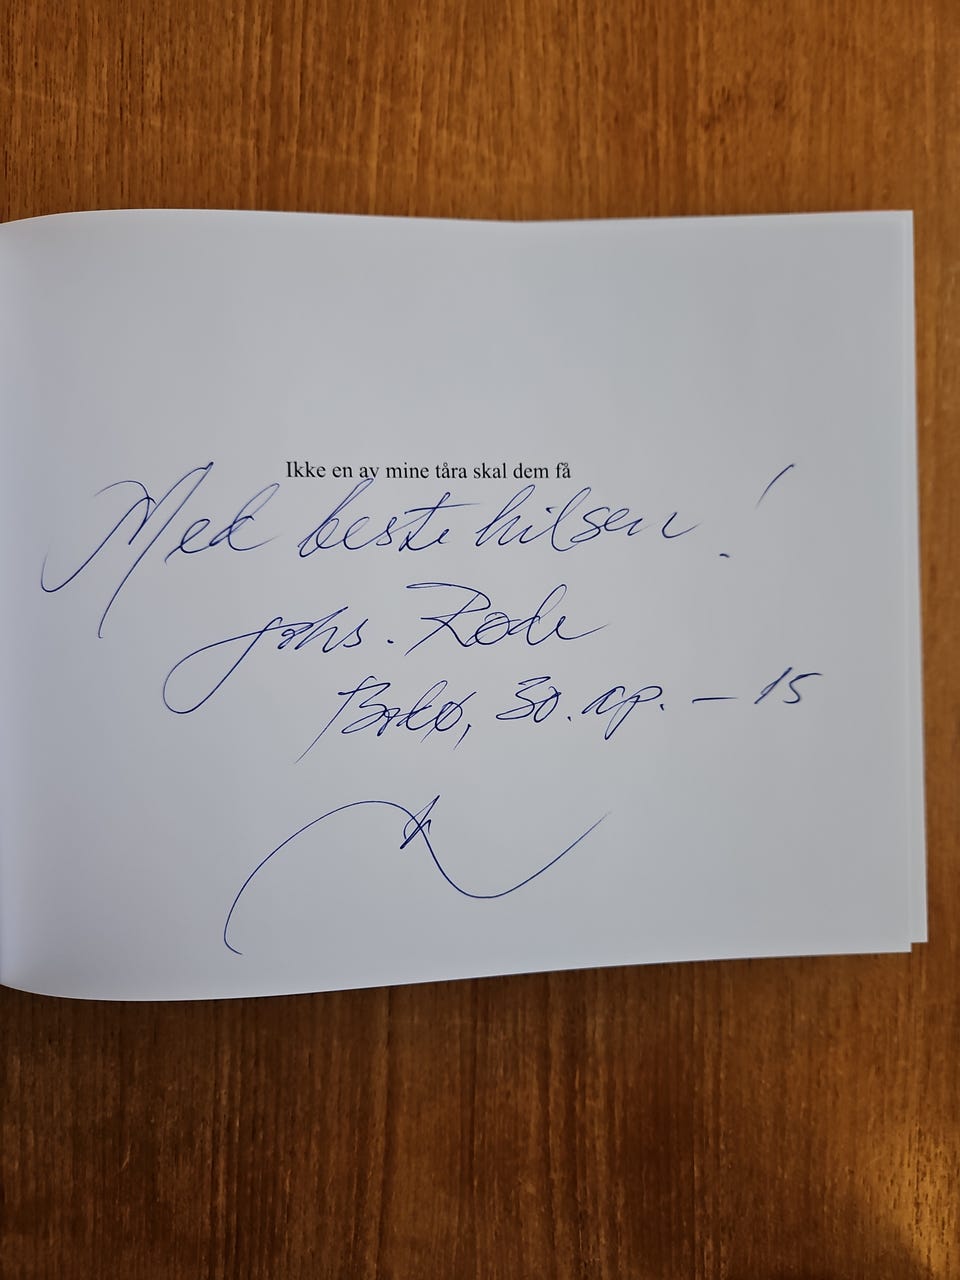 Ikke en av mine tåra skal dem få
Med beste hilsen!
Johs. Røde
Bodø, 30. ap. – 15